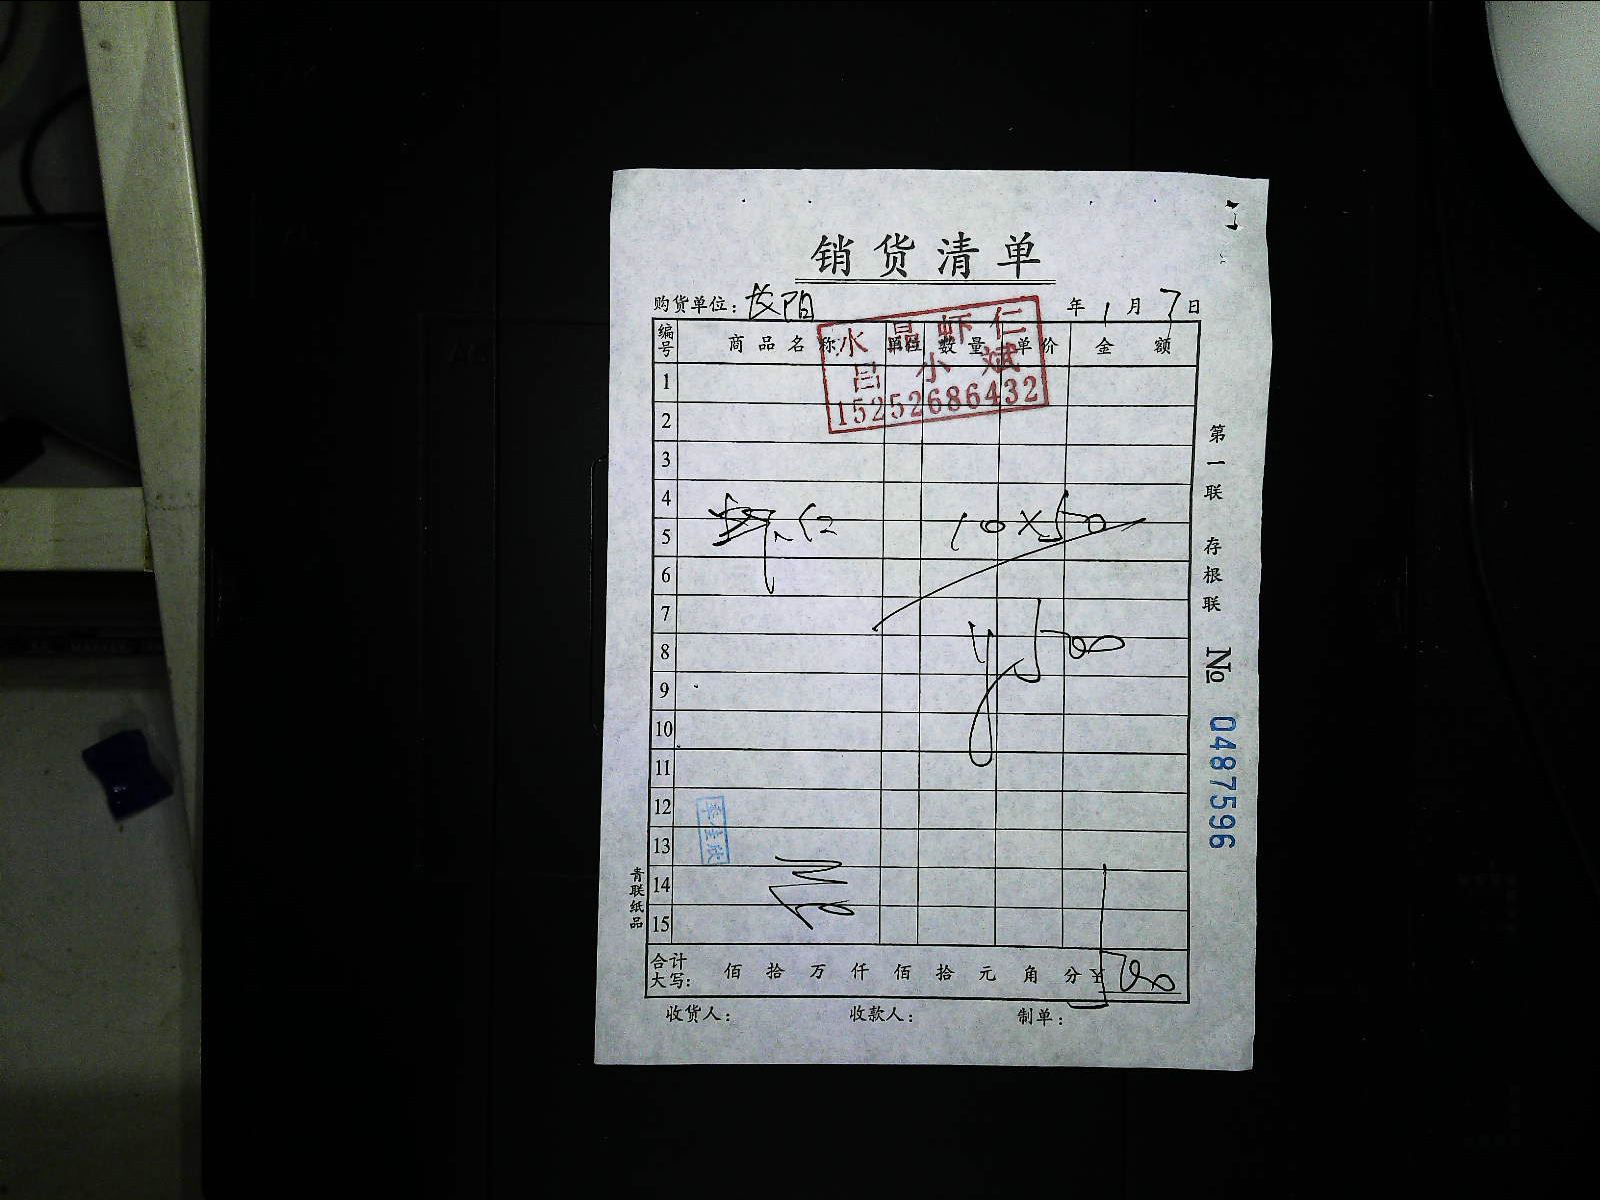 销货清单
购货单位: 年 1 月 7 日
编号 商品名称 单位 数量 单价 金额
水晶虾仁
吕小斌
15252686432
1
2
3
4
虾仁 10×50
5
6
7
8
¥500
9
10
11
12
13
14
15
合计大写: 佰 拾 万 仟 佰 拾 元 角 分 ¥ 500
收货人: 收款人: 制单:
第一联 存根联
№ 0487596
青联纸品